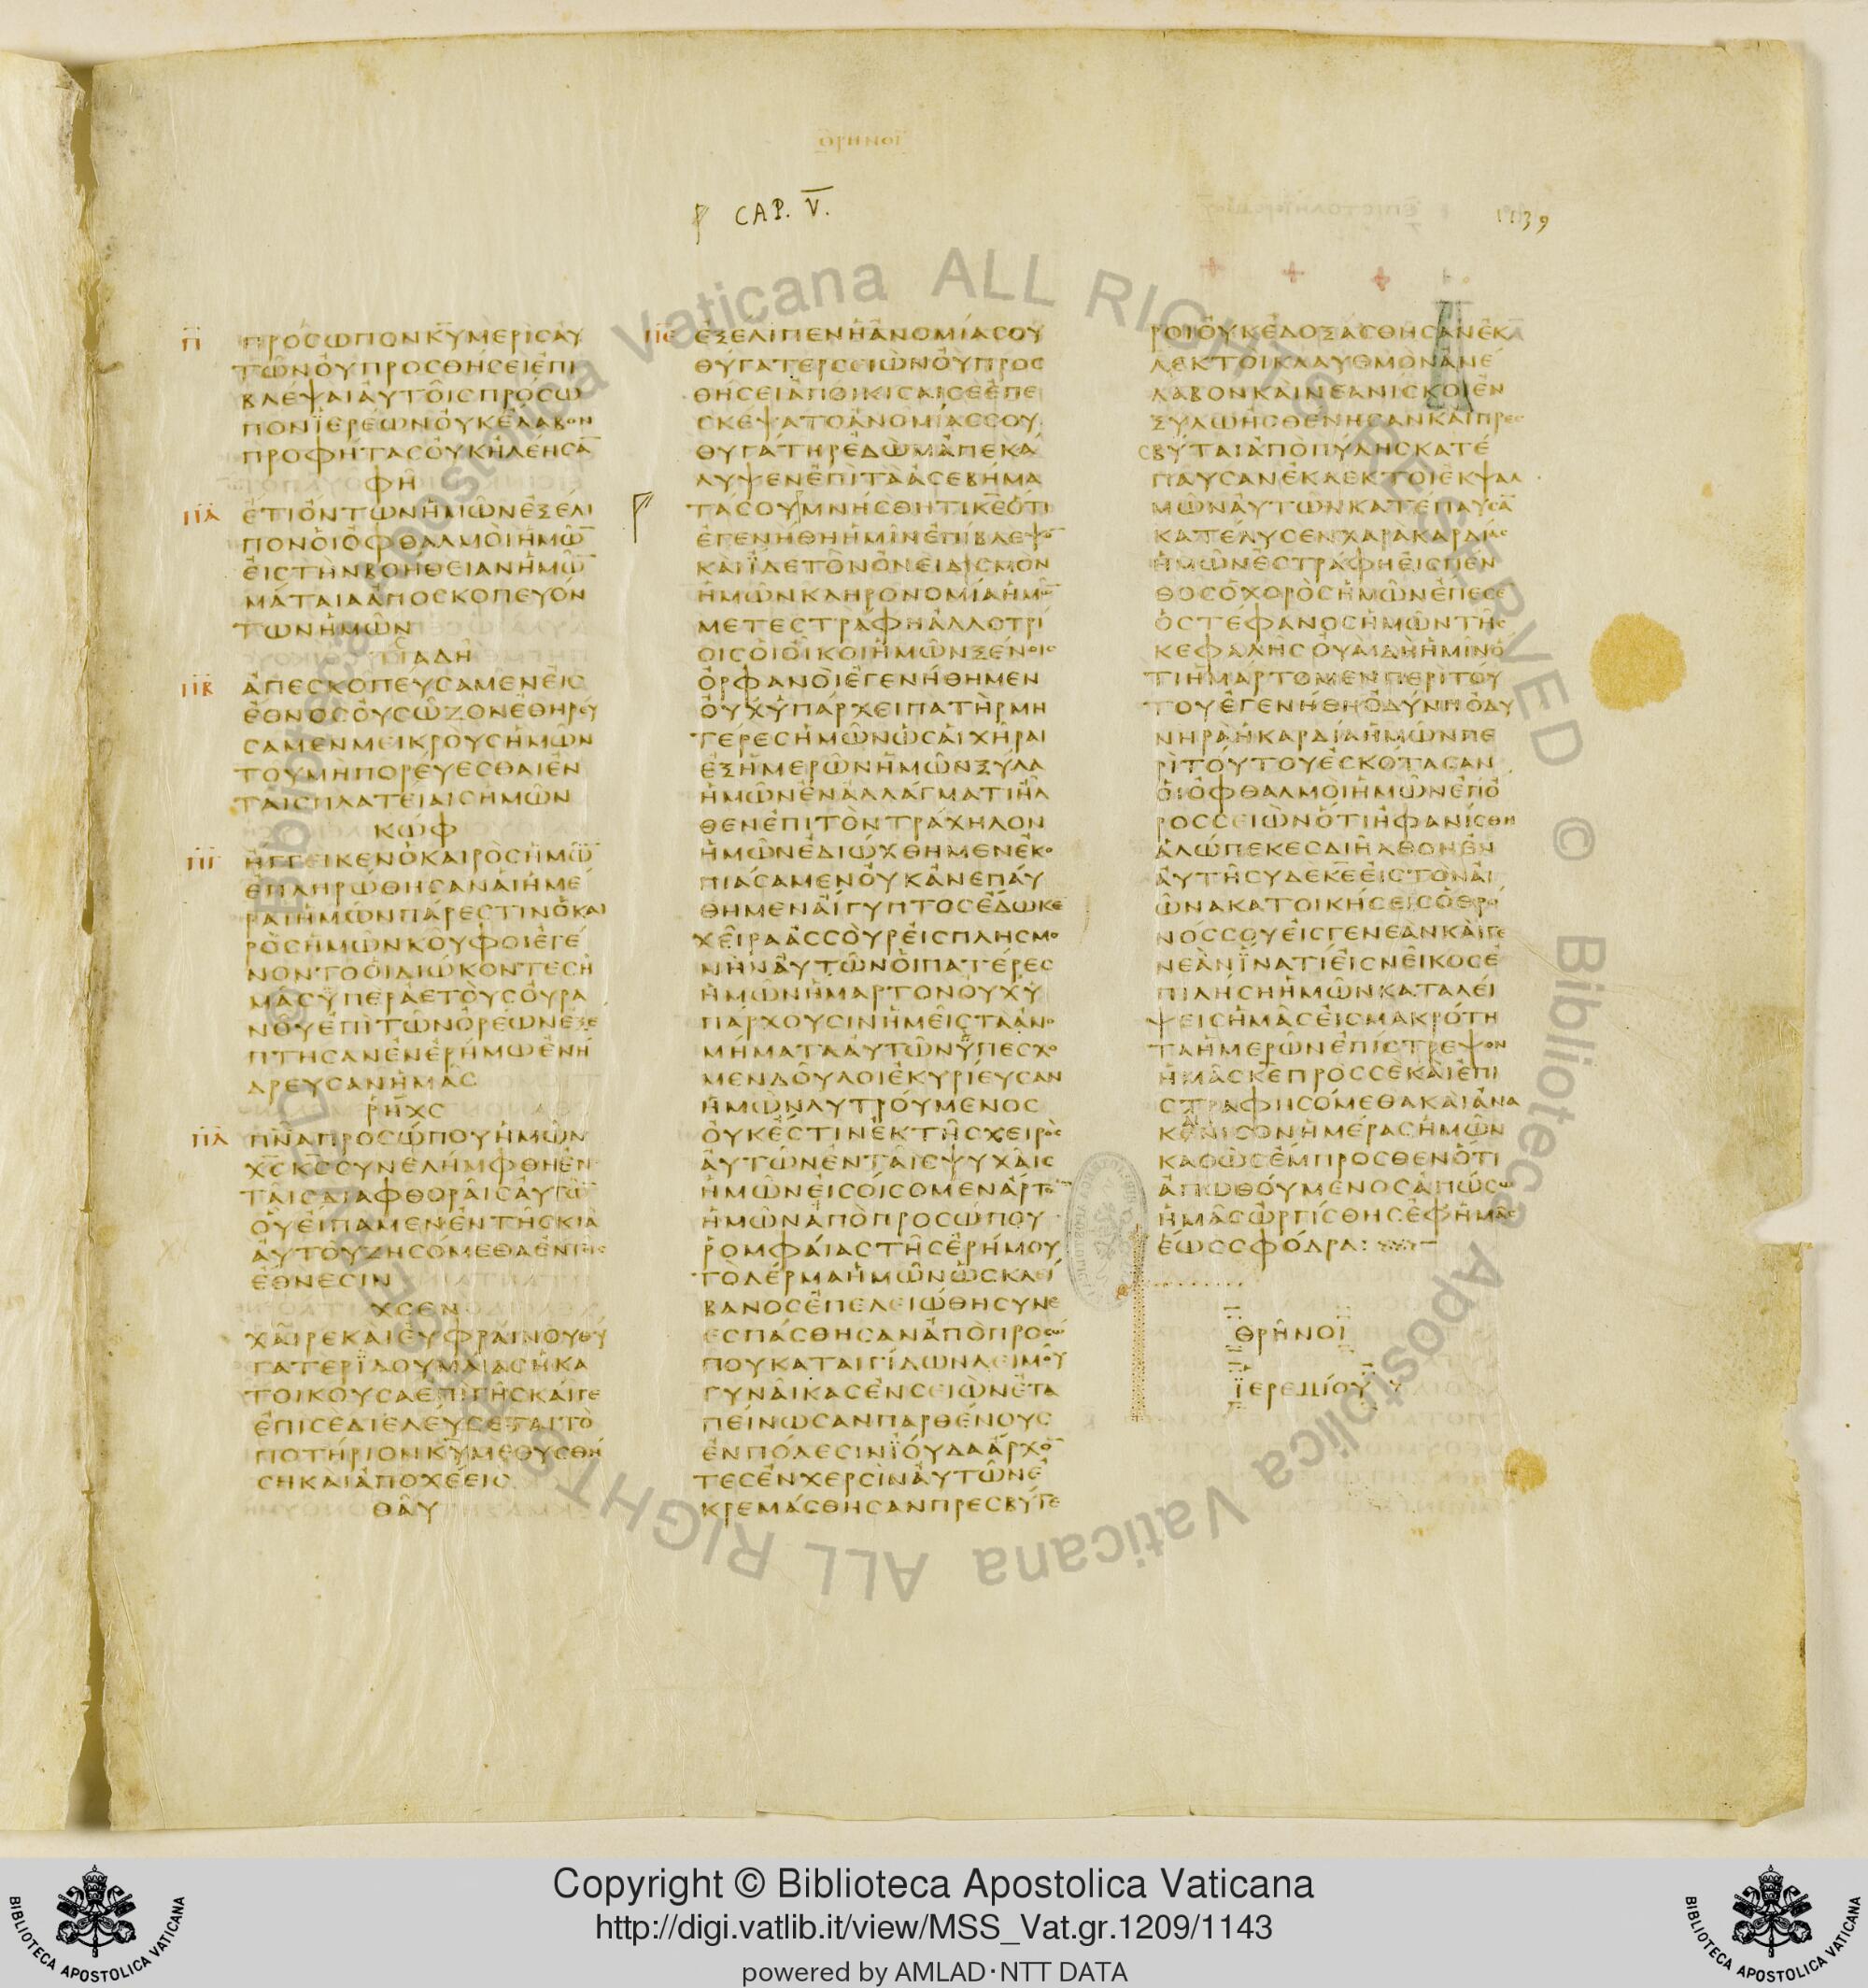 CAP. V.
1139
Π̅
ΠΡΟСΩΠΟΝΚ̅Υ̅ΜΕΡΙСΑΥ
ΤΩΝΟΥΠΡΟСΘΗСΕΙΕΠΙ
ΒΛΕΨΑΙΑΥΤΟΙСΠΡΟСΩ
ΠΟΝΪΕΡΕΩΝΟΥΚΕΛΑΒΟΝ
ΠΡΟΦΗΤΑСΟΥΚΗΛΕΗСΑ̅
ΦΗ
ΕΤΙΟΝΤΩΝΗΜΩΝΕΞΕΛΙ
ΠΟΝΟΙΟΦΘΑΛΜΟΙΗΜΩ̅
ΕΙСΤΗΝΒΟΗΘΕΙΑΝΗΜΩ̅
ΜΑΤΑΙΑΑΠΟСΚΟΠΕΥΟΝ
ΤΩΝΗΜΩΝ
СΑΔΗ
ΑΠΕСΚΟΠΕΥСΑΜΕΝΕΙС
ΕΘΝΟСΟΥСΩΖΟΝΕΘΗΡΕΥ
СΑΜΕΝΜΕΙΚΡΟΥСΗΜΩΝ
ΤΟΥΜΗΠΟΡΕΥΕСΘΑΙΕΝ
ΤΑΙСΠΛΑΤΕΙΑΙСΗΜΩΝ
ΚΩΦ
ΗΓΓΕΙΚΕΝΟΚΑΙΡΟСΗΜΩ̅
ΕΠΛΗΡΩΘΗСΑΝΑΙΗΜΕ
ΡΑΙΗΜΩΝΠΑΡΕСΤΙΝΟΚΑΙ
ΡΟСΗΜΩΝΚΟΥΦΟΙΕΓΕ
ΝΟΝΤΟΟΙΔΙΩΚΟΝΤΕСΗ
ΜΑСΥΠΕΡΑΕΤΟΥСΟΥΡΑ
ΝΟΥΕΠΙΤΩΝΟΡΕΩΝΕΞΕ
ΠΤΗСΑΝΕΝΕΡΗΜΩΕΝΗ
ΔΡΕΥСΑΝΗΜΑС
ΡΗΧС
ΠΝ̅ΑΠΡΟСΩΠΟΥΗΜΩΝ
Χ̅С̅Κ̅С̅СΥΝΕΛΗΜΦΘΗΕΝ
ΤΑΙСΔΙΑΦΘΟΡΑΙСΑΥΤΩ̅
ΟΥΕΙΠΑΜΕΝΕΝΤΗСΚΙΑ
ΑΥΤΟΥΖΗСΟΜΕΘΑΕΝΤΟΙС
ΕΘΝΕСΙΝ
ΧСΕΝ
ΧΑΙΡΕΚΑΙΕΥΦΡΑΙΝΟΥΘΥ
ΓΑΤΕΡΪΔΟΥΜΑΙΑСΗΚΑ
ΤΟΙΚΟΥСΑΕΠΙΓΗСΚΑΙΓΕ
ΕΠΙСΕΔΙΕΛΕΥСΕΤΑΙΤΟ
ΠΟΤΗΡΙΟΝΚ̅Υ̅ΜΕΘΥСΘΗ
СΗΚΑΙΑΠΟΧΕΕΙС
ΘΑΥ
ΕΞΕΛΙΠΕΝΗΑΝΟΜΙΑСΟΥ
ΘΥΓΑΤΕΡСΕΙΩΝΟΥΠΡΟС
ΘΗСΕΙΑΠΟΙΚΙСΑΙСΕΕΠΕ
СΚΕΨΑΤΟΑΝΟΜΙΑССΟΥ
ΘΥΓΑΤΗΡΕΔΩΜΑΠΕΚΑ
ΛΥΨΕΝΕΠΙΤΑΑСΕΒΗΜΑ
ΤΑСΟΥΜΝΗСΘΗΤΙΚ̅Ε̅ΟΤΙ
ΕΓΕΝΗΘΗΗΜΙΝΕΠΙΒΛΕΨΟ̅
ΚΑΙΪΔΕΤΟΝΟΝΕΙΔΙСΜΟΝ
ΗΜΩΝΚΛΗΡΟΝΟΜΙΑΗΜΩ̅
ΜΕΤΕСΤΡΑΦΗΑΛΛΟΤΡΙ
ΟΙСΟΙΟΙΚΟΙΗΜΩΝΞΕΝΟΙС
ΟΡΦΑΝΟΙΕΓΕΝΗΘΗΜΕΝ
ΟΥΧΥΠΑΡΧΕΙΠΑΤΗΡΜΗ
ΤΕΡΕСΗΜΩΝΩСΑΙΧΗΡΑΙ
ΕΞΗΜΕΡΩΝΗΜΩΝΞΥΛΑ
ΗΜΩΝΕΝΑΛΛΑΓΜΑΤΙΗΛ
ΘΕΝΕΠΙΤΟΝΤΡΑΧΗΛΟΝ
ΗΜΩΝΕΔΙΩΧΘΗΜΕΝΕΚΟ
ΠΙΑСΑΜΕΝΟΥΚΑΝΕΠΑΥ
ΘΗΜΕΝΑΙΓΥΠΤΟСΕΔΩΚΕ
ΧΕΙΡΑΑССΟΥΡΕΙСΠΛΗСΜΟ
ΝΗΝΑΥΤΩΝΟΙΠΑΤΕΡΕС
ΗΜΩΝΗΜΑΡΤΟΝΟΥΧΥ
ΠΑΡΧΟΥСΙΝΗΜΕΙСΤΑΑΝΟ
ΜΗΜΑΤΑΑΥΤΩΝΥΠΕСΧΟ
ΜΕΝΔΟΥΛΟΙΕΚΥΡΙΕΥСΑΝ
ΗΜΩΝΛΥΤΡΟΥΜΕΝΟС
ΟΥΚΕСΤΙΝΕΚΤΗСΧΕΙΡΟС
ΑΥΤΩΝΕΝΤΑΙСΨΥΧΑΙС
ΗΜΩΝΕΙСΟΙСΟΜΕΝΑΡΤΟ̅
ΗΜΩΝΑΠΟΠΡΟСΩΠΟΥ
ΡΟΜΦΑΙΑСΤΗСΕΡΗΜΟΥ
ΤΟΔΕΡΜΑΗΜΩΝΩСΚΛΕΙ
ΒΑΝΟСΕΠΕΛΕΙΩΘΗСΥΝΕ
ΕСΠΑСΘΗСΑΝΑΠΟΠΡΟСΩ
ΠΟΥΚΑΤΑΙΓΙΔΩΝΛΕΙΜΟΥ
ΓΥΝΑΙΚΑСΕΝСΕΙΩΝΕΤΑ
ΠΕΙΝΩСΑΝΠΑΡΘΕΝΟΥС
ΕΝΠΟΛΕСΙΝΪΟΥΔΑΑΡΧΟ̅
ΤΕСΕΝΧΕΡСΙΝΑΥΤΩΝΕ
ΚΡΕΜΑСΘΗСΑΝΠΡΕСΒΥΤΕ
ΡΟΙΟΥΚΕΔΟΞΑСΘΗСΑΝΕΚ
ΛΕΚΤΟΙΚΛΑΥΘΜΟΝΑΝΕ
ΛΑΒΟΝΚΑΙΝΕΑΝΙСΚΟΙΕΝ
ΞΥΛΩΗСΘΕΝΗСΑΝΚΑΙΠΡΕС
СΒΥΤΑΙΑΠΟΠΥΛΗСΚΑΤΕ
ΠΑΥСΑΝΕΚΛΕΚΤΟΙΕΚΨΑΛ
ΜΩΝΑΥΤΩΝΚΑΤΕΠΑΥСΑ̅
ΚΑΤΕΛΥСΕΝΧΑΡΑΚΑΡΔΙΑС
ΗΜΩΝΕСΤΡΑΦΗΕΙСΠΕΝ
ΘΟСΟΧΟΡΟСΗΜΩΝΕΠΕСΕ
ΟСΤΕΦΑΝΟСΗΜΩΝΤΗС
ΚΕΦΑΛΗСΟΥΑΙΔΗΗΜΙΝΟ
ΤΙΗΜΑΡΤΟΜΕΝΠΕΡΙΤΟΥ
ΤΟΥΕΓΕΝΗΘΗΟΔΥΝΗΟΔΥ
ΝΗΡΑΗΚΑΡΔΙΑΗΜΩΝΠΕ
ΡΙΤΟΥΤΟΥΕСΚΟΤΑСΑΝ
ΟΙΟΦΘΑΛΜΟΙΗΜΩΝΕΠΟ
ΡΟССΕΙΩΝΟΤΙΗΦΑΝΙСΘΗ
ΑΛΩΠΕΚΕСΔΙΗΛΘΟΝΕΝ
ΑΥΤΗСΥΔΕΚ̅Ε̅ΕΙСΤΟΝΑΙ
ΩΝΑΚΑΤΟΙΚΗСΕΙСΟΘΡΟ
ΝΟССΟΥΕΙСΓΕΝΕΑΝΚΑΙΓΕ
ΝΕΑΝΪΝΑΤΙΕΙСΝΕΙΚΟСΕ
ΠΙΛΗСΗΗΜΩΝΚΑΤΑΛΕΙ
ΨΕΙСΗΜΑСΕΙСΜΑΚΡΟΤΗ
ΤΑΗΜΕΡΩΝΕΠΙСΤΡΕΨΟΝ
ΗΜΑСΚ̅Ε̅ΠΡΟССΕΚΑΙΕΠΙ
СΤΡΑΦΗСΟΜΕΘΑΚΑΙΑΝΑ
ΚΑΙΝΙСΟΝΗΜΕΡΑСΗΜΩΝ
ΚΑΘΩСΕΜΠΡΟСΘΕΝΟΤΙ
ΑΠΩΘΟΥΜΕΝΟСΑΠΩСΩ
ΗΜΑСΩΡΓΙСΘΗСΕΦΗΜΑС
ΕΩССΦΟΔΡΑ:
ΘΡΗΝΟΙ
ΪΕΡΕΜΙΟΥ
Copyright © Biblioteca Apostolica Vaticana
http://digi.vatlib.it/view/MSS_Vat.gr.1209/1143
powered by AMLAD·NTT DATA
BIBLIOTECA APOSTOLICA VATICANA
BIBLIOTECA APOSTOLICA VATICANA
ALL RIGHTS RESERVED © Biblioteca Apostolica Vaticana ALL RIGHTS RESERVED © Biblioteca Apostolica Vaticana